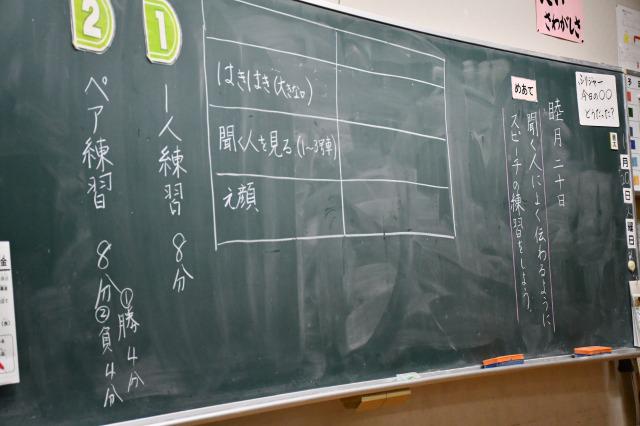 さわがしさ
今日の○○
どうだった?
月
日
曜日
睦月 二十日
めあて
聞く人によく伝わるように、
スピーチの練習をしよう。
はきはき(大きな口)
聞く人を見る(1~3号車)
え顔
1
1人練習 8分
2
ペア練習 8分
①勝 4分
②負 4分
金